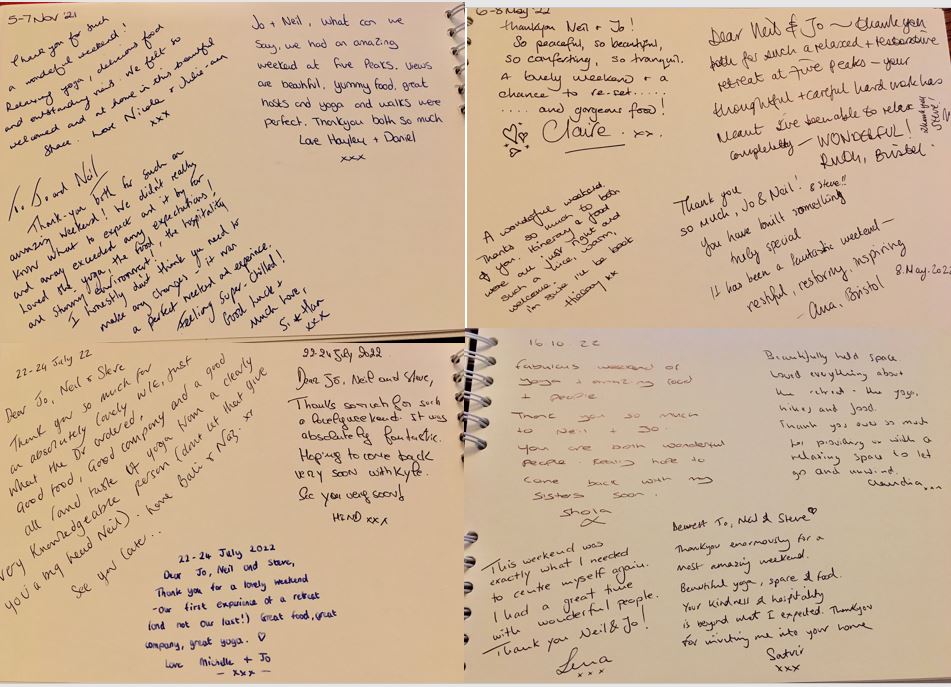 5-7 Nov '21
Thank you for such
a wonderful weekend!
Relaxing yoga, delicious food
and outstanding views. We felt so
welcomed and at home in this beautiful
space. Love Nicola + Julie-ann
xxx
Jo + Neil, what can we
say, we had an amazing
weekend at five Peaks. Views
are beautiful, yummy food, great
hosts and yoga and walks were
perfect. Thankyou both so much
Love Hayley + Daniel
xxx
To Jo and Neil
Thank-you both for such an
amazing weekend! We didn't really
know what to expect and it by far
and away exceeded any expectations!
Loved the yoga, the food, the hospitality
and stunning environment!
I honestly don't think you need to
make any changes - it was
a perfect weekend and experience.
Feeling super-chilled!
Good luck +
much love,
Si + Han
xxx
6-8 May '22
thankyou Neil + Jo!
So peaceful, so beautiful,
so comforting, so tranquil.
A lovely weekend + a
chance to re-set.....
.... and gorgeous food!
Claire. xx.
Dear Neil & Jo ~ thank you
both for such a relaxed + restorative
retreat at Five peaks - your
thoughtful + careful hard work has
meant I've been able to relax
completely - WONDERFUL!
Ruth, Bristol.
thank you
Steve!
A wonderful weekend.
Thanks so much to both
of you. Itinerary & food
were all just right and
such a nice, warm,
welcome. I'll be back
I'm sure
xx
Thank you
so much, Jo & Neil! & Steve!!
You have built something
truly special
It has been a fantastic weekend -
restful, restoring, inspiring
- Ana, Bristol
8.May.2022
22-24 July 22
Dear Jo, Neil + Steve
Thank you so much for
an absolutely lovely while, just
what the Dr ordered.
Good food, Good company and a good
all round taste of yoga from a clearly
very knowledgeable person (don't let that give
you a big head Neil). Love Bain + Naz. xx
See you later...
22-24 July 2022.
Dear Jo, Neil and Steve,
Thanks so much for such
a lovely weekend. it was
absolutely fantastic.
Hoping to come back
very soon with Kyle.
See you very soon!
HIND xxx
22-24 July 2022
Dear Jo, Neil and Steve,
Thank you for a lovely weekend
- Our first experience of a retreat
(and not our last!) Great food, great
company, great yoga. ♡
Love Michelle + Jo
- xxx -
16.10.22
Fabulous weekend of
yoga + amazing food
+ people.
Thank you so much
to Neil + Jo.
You are both wonderful
people. hope to
come back with my
Sisters soon.
Shola
x
Beautifully held space.
Loved everything about
the retreat - the yoga,
hikes and food.
Thank you ever so much
for providing us with a
relaxing space to let
go and unwind.
Claudia...
This weekend was
exactly what I needed
to centre myself again.
I had a great time
with wonderful people.
Thank you Neil & Jo!
Lena
xxx
Dearest Jo, Neil & Steve♡
Thankyou enormously for a
most amazing weekend.
Beautiful yoga, space & food.
Your kindness & hospitality
is beyond what I expected. Thankyou
for inviting me into your home
Satvir
xxx